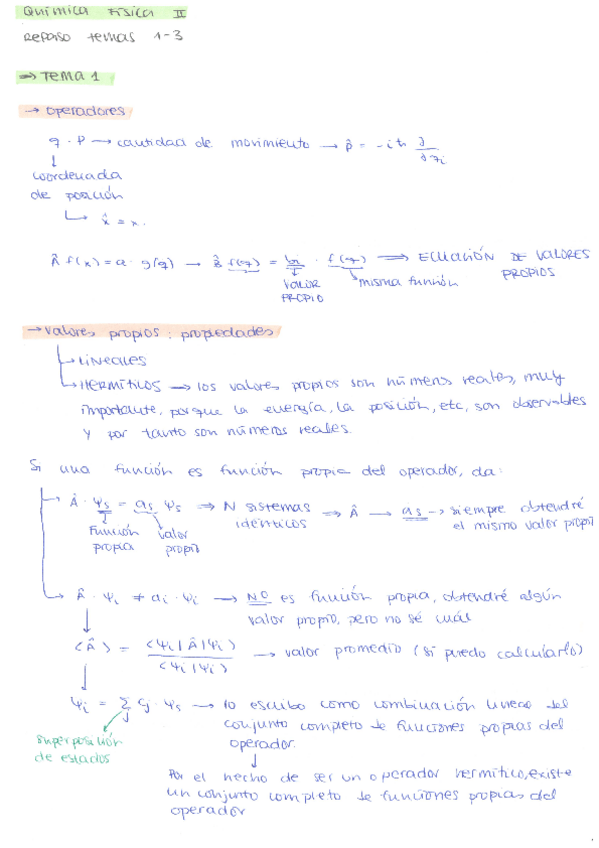 QUÍMICA FÍSICA II
REPASO TEMAS 1-3
⇒ TEMA 1
→ OPERADORES
q · P → cantidad de movimiento → p̂ = -iħ ∂/∂qi
↓
coordenada
de posición
↳ x̂ = x.
Â f(x) = a · g(q) → B̂ f(q) = bi · f(q) ⟹ ECUACIÓN DE VALORES PROPIOS
VALOR PROPIO
misma función
→ valores propios: propiedades
↳ LINEALES
↳ HERMÍTICOS → los valores propios son números reales, muy
importante, porque la energía, la posición, etc, son observables
y por tanto son números reales.
Si una función es función propia del operador, da:
→ Â · Ψs = as Ψs ⇒ N sistemas idénticos ⇒ Â → as → siempre obtendré el mismo valor propio
Función propia
valor propio
↳ Â · Ψi ≠ ai · Ψi → NO es función propia, obtendré algún
valor propio, pero no sé cuál
⟨Â⟩ = ⟨Ψi|Â|Ψi⟩ / ⟨Ψi|Ψi⟩ → valor promedio (sí puedo calcularlo)
Ψi = Σj Cj · Ψs → lo escribo como combinación lineal del
conjunto completo de funciones propias del
operador.
superposición
de estados
↓
Por el hecho de ser un operador hermítico, existe
un conjunto completo de funciones propias del
operador